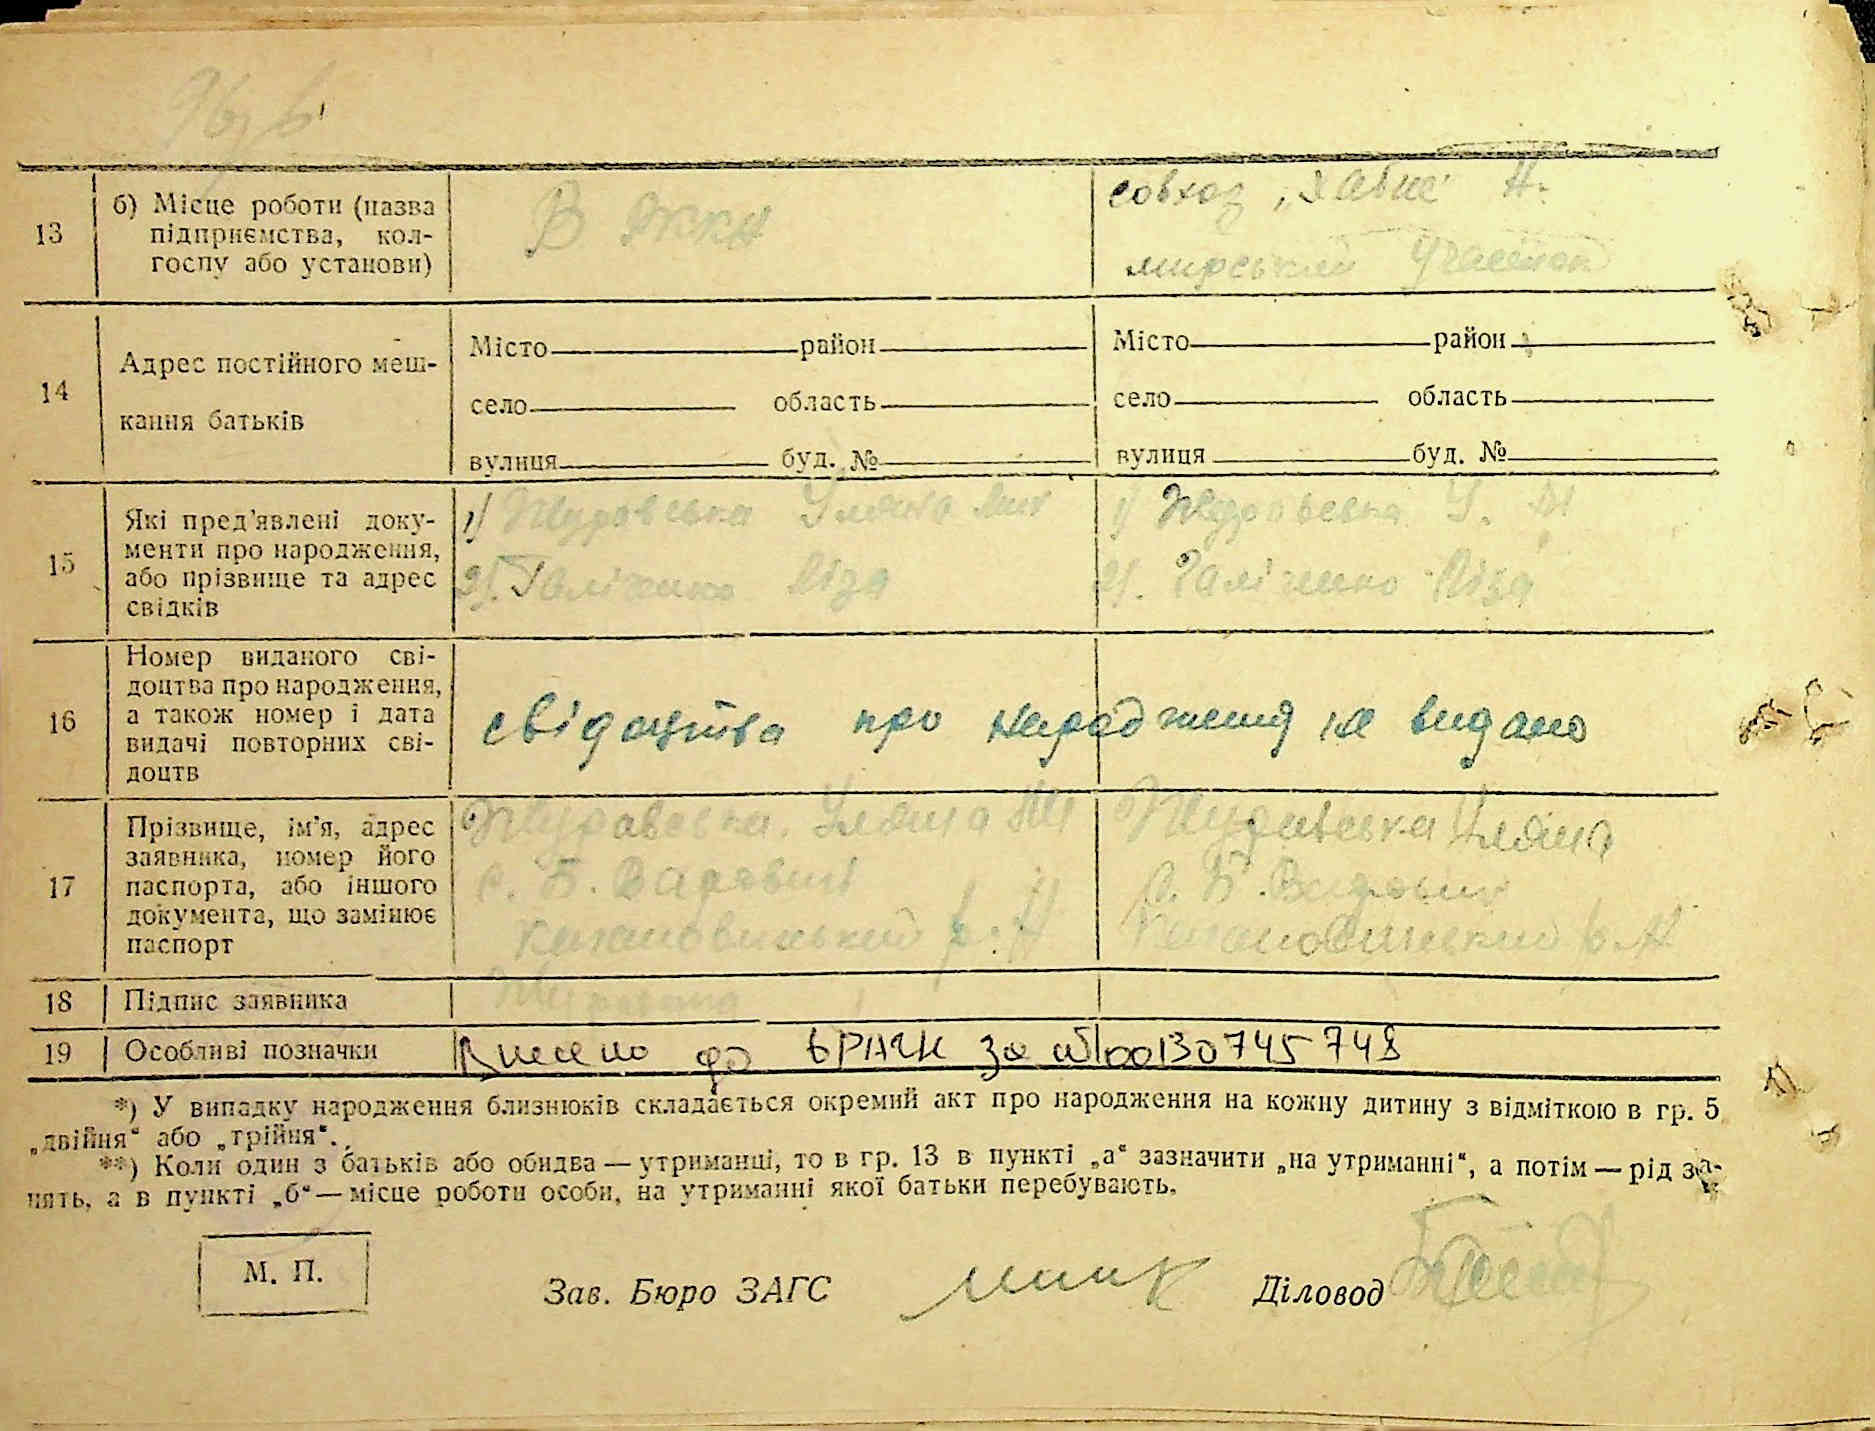 13 б) Місце роботи (назва підприємства, кол-
госпу або установи)
В РККА
совхоз „Хабне" Н.
мирський участок
14 Адрес постійного меш-
кання батьків
Місто район Місто район
село область село область
вулиця буд. № вулиця буд. №
15 Які пред'явлені доку-
менти про народження,
або прізвище та адрес
свідків
1) Журавська Уляна 1) Журавська У. М
2). Галіченко Ліза 2). Галіченко Ліза
16 Номер виданого сві-
доцтва про народження,
а також номер і дата
видачі повторних сві-
доцтв
свідоцтва про народження не видано
17 Прізвище, ім'я, адрес
заявника, номер його
паспорта, або іншого
документа, що замінює
паспорт
Журавська Уляна М Журавська Уляна
с. Б. Варовичі с. Б. Варовичі
Кагановичський р-н Кагановичский р-н
18 Підпис заявника
19 Особливі позначки Внесено до ДРАЦС за №00130745748
*) У випадку народження близнюків складається окремий акт про народження на кожну дитину з відміткою в гр. 5
„двійня" або „трійня".
**) Коли один з батьків або обидва — утриманці, то в гр. 13 в пункті „а" зазначити „на утриманні", а потім — рід за-
нять, а в пункті „б" — місце роботи особи, на утриманні якої батьки перебувають.
М. П.
Зав. Бюро ЗАГС Діловод